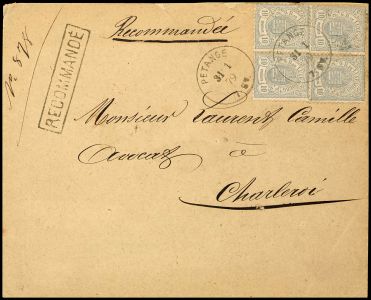 Recommandée
No. 878
RECOMMANDÉ
PETANGE
31 1
79
10 10
10 10
Monsieur Laurent Camille
avocat à
Charleroi